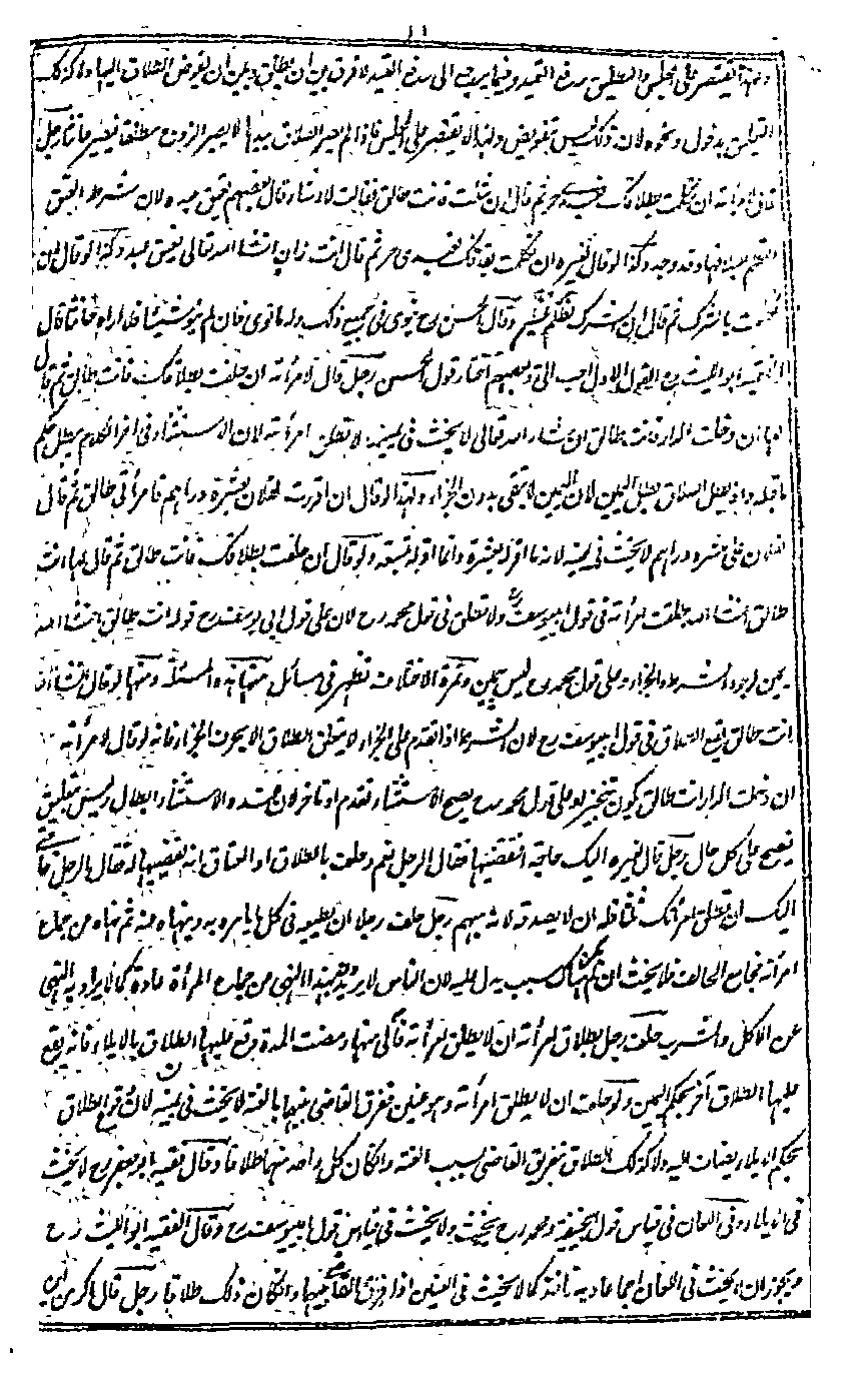 ولهذا يقتصر على المجلس والتعليق يرفع القيد وفيما يرجع الى رفع القيد لا فرق بين ان يطلق وبين ان يفوض الطلاق اليها ولا كذلك
التعليق بدخول ونحوه لان ذلك ليس بتفويض ولهذا لا يقتصر على المجلس فاذا لم يصر الطلاق بيدها لا يصير الزوج مطلقا فيصير حانثا رجل
قال لامرأته ان حلفت بطلاقك فعبده حر ثم قال ان شئت فانت طالق فقالت لا اشاء قال بعضهم يعتق عبده لان شرط العتق
وقد وجد وكذا لو قال لغيره ان تكلمت بقذفك فعبدى حر ثم قال انت زان انشاء الله تعالى يعتق عبده وكذا لو قال ان
تكلمت بالشرك ثم قال ان الشرك لظلم عظيم وقال الحسن رح ينوى فى جميع ذلك وله ما نوى فان لم ينو شيئا فلا اراه حانثا قال
الفقيه ابو الليث رح القول الاول احب الى وبعضهم اختار قول الحسن رجل قال لامرأته ان حلفت بطلاقك فانت طالق ثم قال
لها ان دخلت الدار فانت طالق ان شاء الله تعالى لا يحنث فى يمينه لا تطلق امرأته لان الاستثناء فى اخر الكلام يبطل حكم
ما قبله واذ بطل الطلاق بطل اليمين لان اليمين لا تبقى بدون الجزاء ولهذا لو قال ان اقررت لفلان بعشرة دراهم فامرأتى طالق ثم قال
لفلان على عشرة دراهم لا يحنث فى يمينه لانه ما اقر له بعشرة وانما اقر له بتسعة ولو قال ان حلفت بطلاقك فانت طالق ثم قال لها انت
طالق انشاء الله طلقت امرأته فى قول ابيوسف رح ولا تطلق فى قول محمد رح لان على قول ابى يوسف رح قوله انت طالق انشاء الله
يمين لوجود الشرط والجزاء وعلى قول محمد رح ليس بيمين وثمرة الاختلاف تظهر فى مسائل منها هذه المسئلة ومنها لو قال انشاء الله
انت طالق يقع الطلاق فى قول ابيوسف رح لان الشرط اذا تقدم على الجزاء لا يتعلق الطلاق الا بحرف الجزاء فانه لو قال لامرأته
ان دخلت الدار انت طالق يكون تنجيزا وعلى قول محمد رح يصح الاستثناء تقدم او تأخر لان عنده الاستثناء ابطال وليس بتعليق
فيصح على كل حال رجل قال لغيره اليك حاجة اتقضيها فقال الرجل نعم وحلف بالطلاق او العتاق انه يقضيها له فقال الرجل حاجتى
اليك ان تطلق امرأتك ثلثا فله ان لا يصدقه لانه متهم رجل حلف رجلا ان يطيعه فى كل ما يأمره به وينهاه عنه ثم نهاه عن جماع
امرأته فجامع الحالف فلا يحنث ان لم يكن هناك سبب يدل عليه لان الناس لا يريدون بهذا النهى عن جماع المرأة عادة كما لا يراد به النهى
عن الاكل والشرب حلف رجل بطلاق امرأته ان لا يطلق امرأته فآلى منها ومضت المدة وقع عليها الطلاق بالايلاء فانه يقع
عليها الطلاق آخر بحكم اليمين ولو حلف ان لا يطلق امرأته وهو عنين ففرق القاضى بينهما بالعنة لا يحنث فى يمينه لان وقوع الطلاق
بحكم الايلاء يضاف اليه ولا كذلك الطلاق بتفريق القاضى بسبب العنة وان كان كل واحد منهما طلاقا وقال فقيه ابو جعفر رح لا يحنث
فى الايلاء وفى اللعان فى قياس قول ابيحنيفة ومحمد رح يحنث ولا يحنث فى قياس قول ابيوسف رح وقال الفقيه ابو الليث رح
يجوز ان لا يحنث فى اللعان كما لا يحنث فى العنين اذا فرق القاضى بينهما وان كان ذلك طلاقا رجل قال اكر من